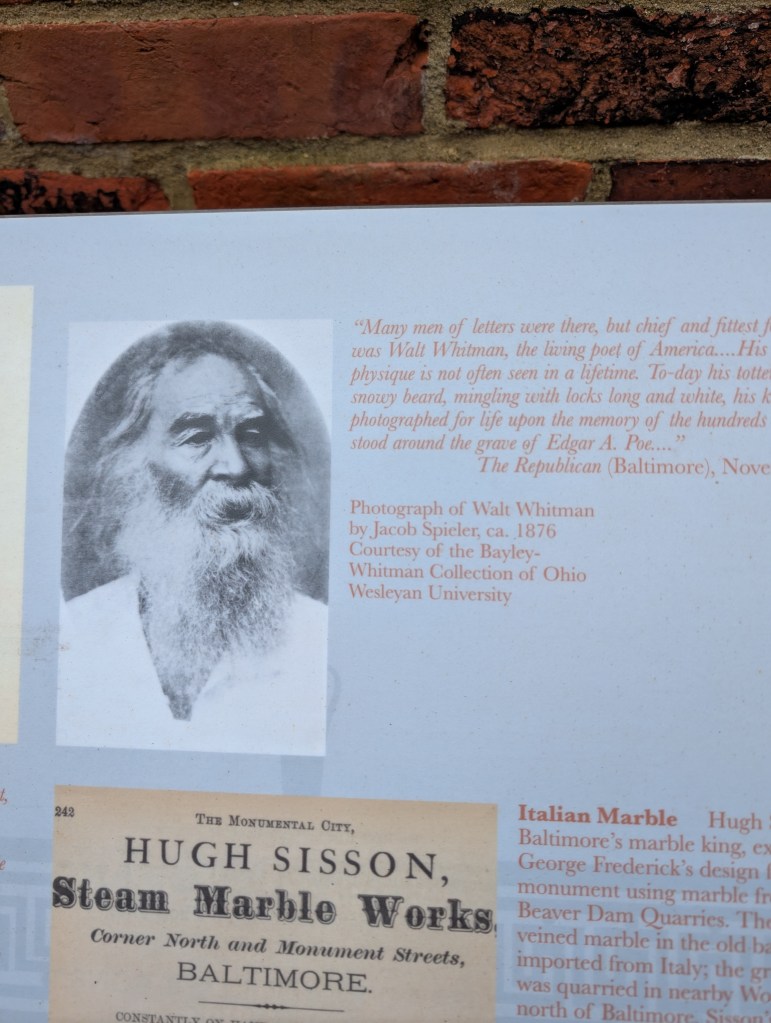 “Many men of letters were there, but chief and fittest
was Walt Whitman, the living poet of America....His
physique is not often seen in a lifetime. To-day his
snowy beard, mingling with locks long and white, his
photographed for life upon the memory of the hundreds
stood around the grave of Edgar A. Poe....”
The Republican (Baltimore),
Photograph of Walt Whitman
by Jacob Spieler, ca. 1876
Courtesy of the Bayley-
Whitman Collection of Ohio
Wesleyan University
242
THE MONUMENTAL CITY,
HUGH SISSON,
Steam Marble Works,
Corner North and Monument Streets,
BALTIMORE.
Italian Marble Hugh
Baltimore’s marble king,
George Frederick’s design
monument using marble
Beaver Dam Quarries.
veined marble in the old
imported from Italy; the
was quarried in nearby
north of Baltimore. Sisson’s